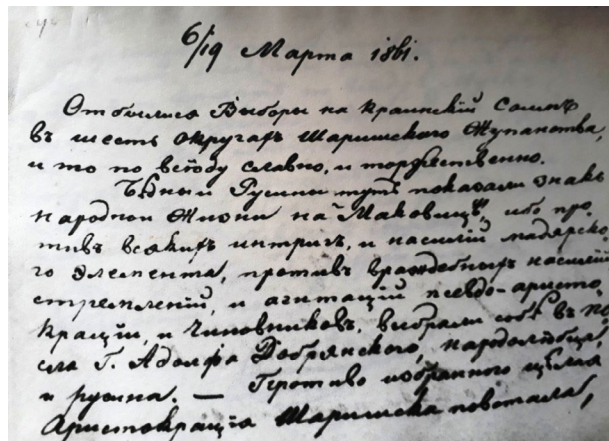 6/19 Марта 1861.
Отбылися Выборы на краинскій Соимъ
въ шесть округахъ Шаришского Жупанства,
и то по всюду славно, и торжественно.
Бѣдныи Русины тутъ показали знакъ
народнои Жизни на Маковицѣ, ибо про
тивъ всякихъ интригъ, и насилій мадярско
го Элемента, противъ враждебныхъ насилій
стремленій, и агитацій псевдо-аристо
крацiи, и Чиновниковъ, выбрали собѣ въ по
сла Г. Адольфа Добрянского, народолюбца,
и русина. — Противо избранного цѣлая
Аристокрація Шаришска повстала,